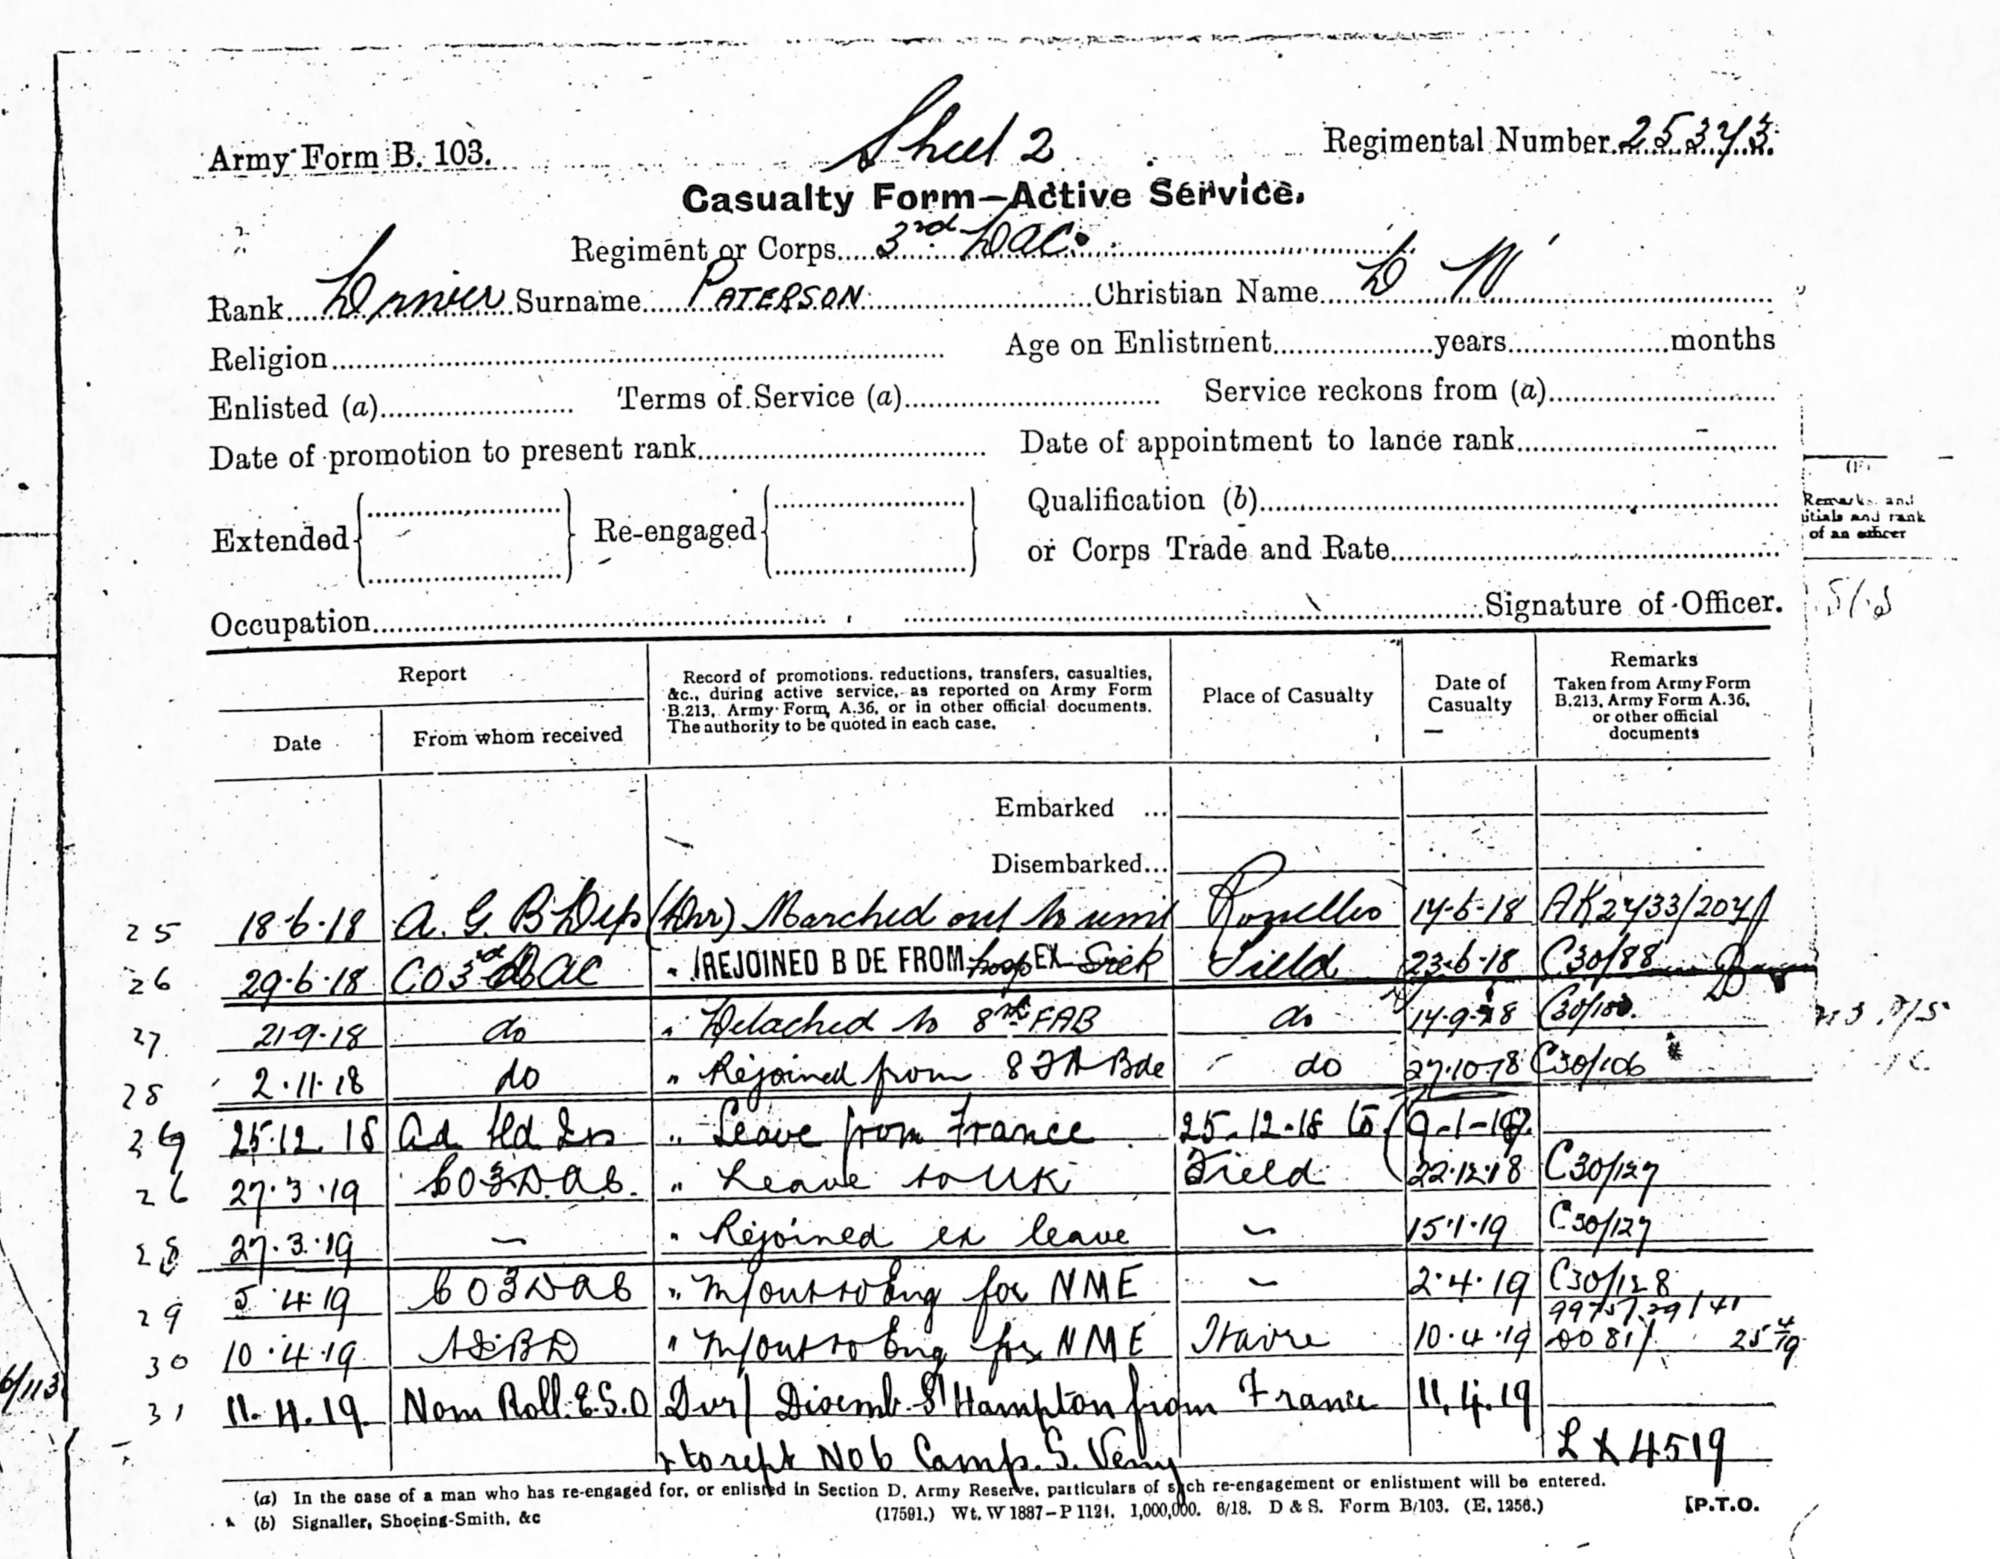 Sheet 2
Army Form B. 103. Regimental Number 25373
Casualty Form—Active Service.
Regiment or Corps 3rd DAC.
Rank Driver Surname PATERSON Christian Name D
Religion Age on Enlistment years months
Enlisted (a) Terms of Service (a) Service reckons from (a)
Date of promotion to present rank Date of appointment to lance rank
Extended Re-engaged Qualification (b)
or Corps Trade and Rate
Remarks and
itials and rank
of an officer
Occupation Signature of Officer.
Report
Date From whom received
Record of promotions, reductions, transfers, casualties,
&c., during active service, as reported on Army Form
B.213, Army Form A.36, or in other official documents.
The authority to be quoted in each case.
Place of Casualty
Date of
Casualty
Remarks
Taken from Army Form
B.213, Army Form A.36,
or other official
documents
Embarked ...
Disembarked...
25 18-6-18 A. G. B Dep (Dvr) Marched out to unit Rouelles 14-6-18
26 29-6-18 CO 3rd DAC " REJOINED B DE FROM hosp EX Sick Field 23-6-18 C30/88
27 21-9-18 do " Detached to 8th FAB do 14-9-18
28 2.11.18 do " Rejoined from 8 FA Bde do 27.10.18 C30/106
25.12.18 " Leave from France 25-12-18 to 9-1-19
26 27.3.19 CO 3 D.A.C. " Leave to UK Field 22.12.18 C30/127
28 27.3.19 — " Rejoined ex leave — 15.1.19 C30/127
29 5.4.19 CO 3 DAC " M/out to Eng for NME — 2.4.19 C30/128
30 10.4.19 " M/out to Eng for NME Havre 10.4.19
31 11.4.19. Nom Roll. E.S.O Dvr/ Disemb. S'Hampton from France 11.4.19
& to rept No 6 Camp. S. Veny LX 4519
(a) In the case of a man who has re-engaged for, or enlisted in Section D, Army Reserve, particulars of such re-engagement or enlistment will be entered.
(b) Signaller, Shoeing-Smith, &c (17591.) Wt. W 1887—P 1121. 1,000,000. 6/18. D & S. Form B/103. (E. 1256.) [P.T.O.
6/113